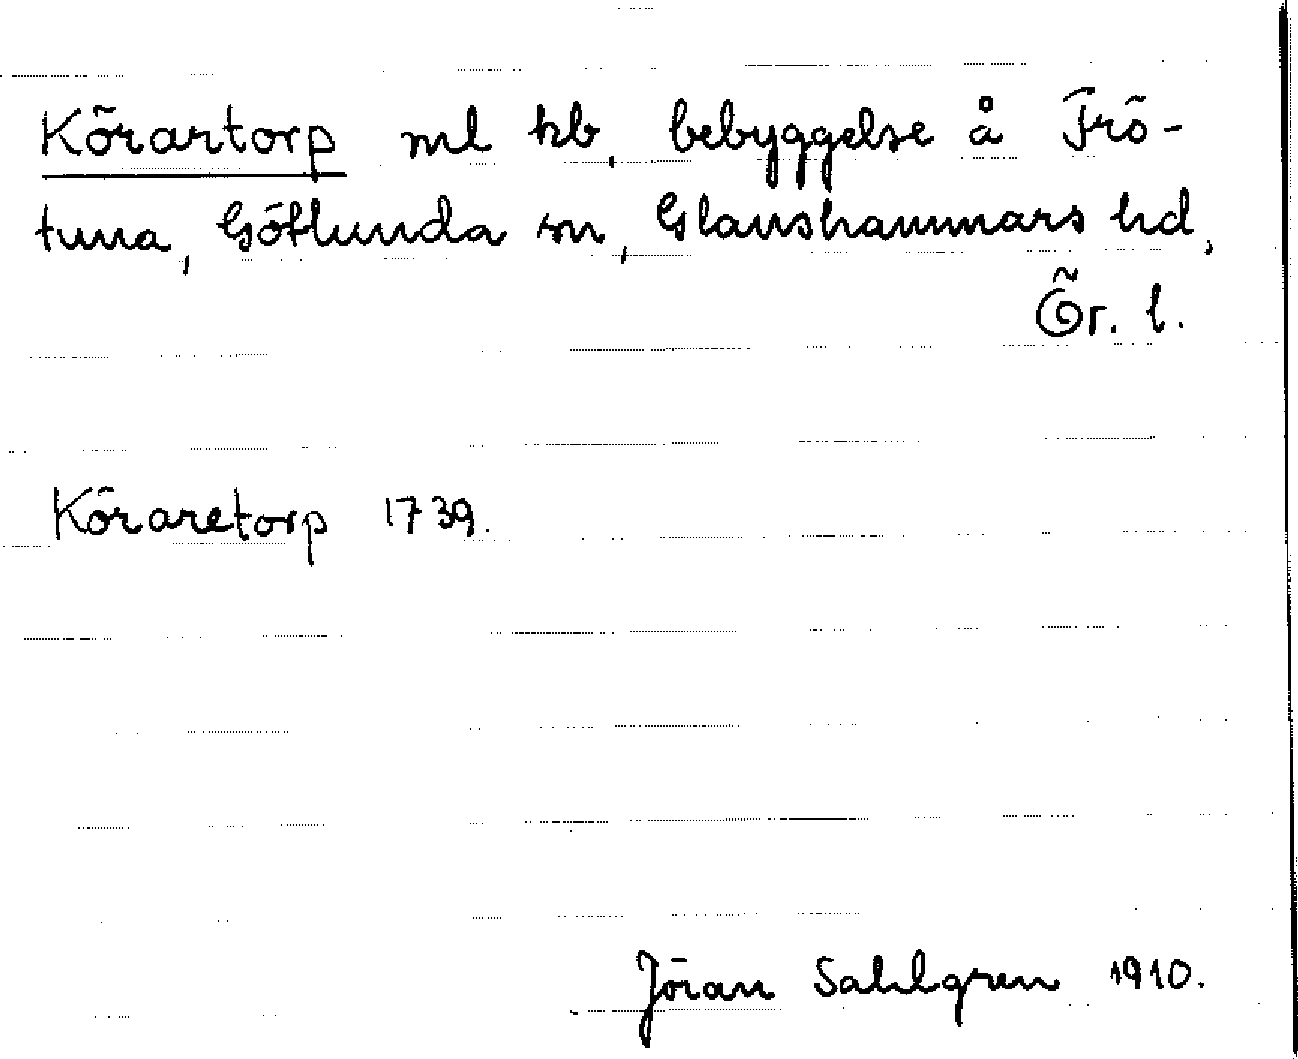 Körartorp ml kb, bebyggelse å Frö-
tuna, Götlunda sn, Glanshammars hd,
Ör. l.
Köraretorp 1739.
Jöran Sahlgren 1910.